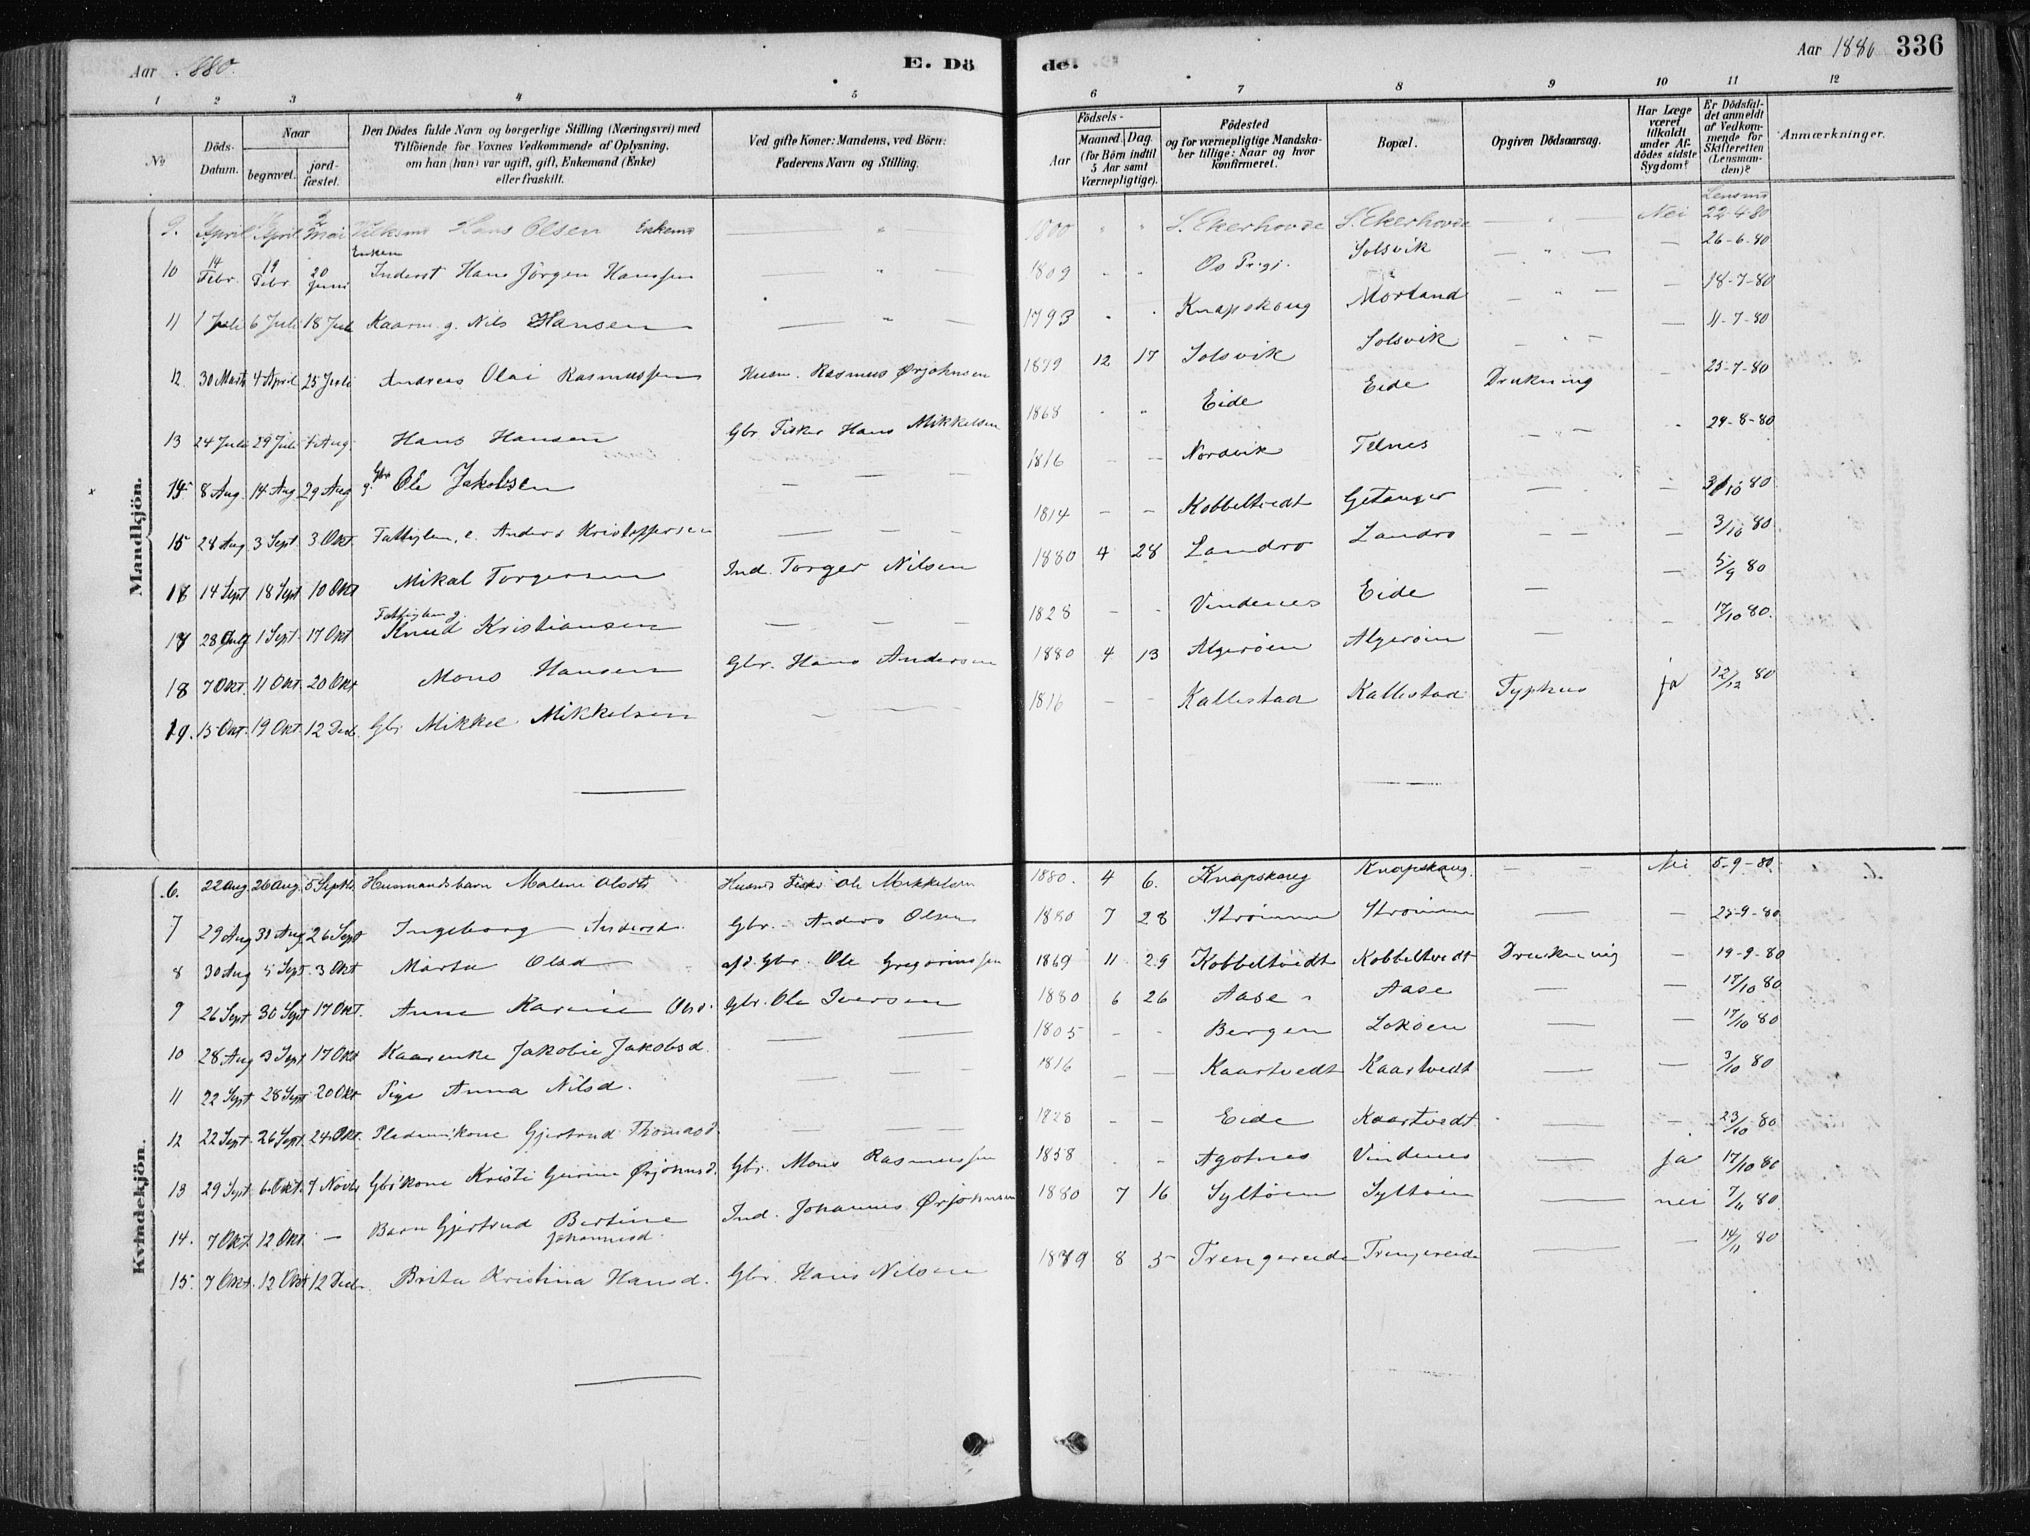 Aar 1880.
E. Dö
de.
Aar 1880
336
1 2 3 4 5 6 7 8 9 10 11 12
No
Döds-Datum.
Naar
begravet.
jord-fæstet.
Den Dödes fulde Navn og borgerlige Stilling (Næringsvei) med Tilföiende for Voxnes Vedkommende af Oplysning, om han (hun) var ugift, gift, Enkemand (Enke) eller fraskilt.
Ved gifte Koner: Mandens, ved Börn: Faderens Navn og Stilling.
Födsels-
Aar
Maaned. Dag.
(for Börn indtil 5 Aar samt Værnepligtige).
Födested og for værnepligtige Mandskaber tillige: Naar og hvor konfirmeret.
Bopæl.
Opgiven Dödsaarsag.
Har Læge været tilkaldt under Afdödes sidste Sygdom?
Er Dödsfaldet anmeldt af Vedkommende for Skifteretten (Lensmanden)?
Anmærkninger.
Mandkjön.
9. April April 2 Mai Hans Olsen Enkem. — " 1800 " " S. Ekerhovde S. Ekerhovde — " — Nei Lensm 22-4-80
10 14 Febr. 19 Febr. 20 Juni Enkem Inderst Hans Jörgen Hanssen — " — 1809 - - Os Prgj. Solsvik — " — — 26-6-80
11 1 Juli 6 Juli 18 Juli Kaarm. g. Nils Hansen — " — 1793 " " Knapskoug Morland — " — — 18-7-80
12 30 Marts 4 April 25 Juli Andreas Olai Rasmussen Husm. Rasmus Ørjohnsen 1879 12 17 Solsvik Solsvik - " - — 11-7-80
13 24 Juli 29 Juli 1 Aug Hans Hansen Gbr Fisker Hans Mikkelsen 1868 - " Eide Eide Drukning - 25-7-80
14 8 Aug. 14 Aug 29 Aug g. Gbr Ole Jakobsen — — — 1816 - - Nordvik Telnes — — - 29-8-80
15 28 Aug 3 Sept. 3 Okt. Fattiglem, e. Anders Kristoffersen — — — 1814 - - Kobbeltvedt Getanger — — 3/10 80
18 14 Sept 18 Sept 10 Okt Mikal Torgersen Ind. Torger Nilsen 1880 4 28 Landro Landro — — — 3/10 80
17 28 Aug 1 Sept. 17 Okt Fattiglem g. Knud Kristiansen — — — 1828 - - Vindenes Eide — — 5/9 80
18 7 Okt. 11 Okt. 20 Okt Mons Hansen Gbr. Hans Andersen 1880 4 13 Algeröen Algeröen — 17/10 80.
19. 15 Okt. 19 Okt. 12 Dec. Gbr Mikkel Mikkelsen — — 1816 - - Kallestad Kallestad Typhus ja 12/12 80
Kvindekjön.
6. 22 Aug 26 Aug. 5 Septb. Husmandsbarn Malene Olsdt Husm Fisker Ole Mikkelsen 1880. 4 6. Knapskoug Knapskoug. — — Nei 5-9-80.
7 29 Aug 31 Aug. 26 Sept Ingeborg Andersd. Gbr. Anders Olsen 1880 7 28 Strömme Strömme — — 25-9-80
8 30 Aug 5 Sept. 3 Okt Marta Olsd afd. Gbr. Ole Gregoriussen 1869 11 29 Kobbeltvedt Kobbeltvedt Drukning — 19-9-80
9 26 Sept 30 Sept 17 Okt. Anne Karine Olsd. Gbr. Ole Iversen 1880 6 26 Aase Aase — — 17/10 80
10 28 Aug 3 Sept 17 Okt Kaarenke Jakobie Jakobsd. — — 1805 - - Bergen Lokøen — — 17/10 80
11 22 Sept 28 Sept 20 Okt Pige Anna Nilsd. — — — 1816 — — Kaartvedt Kaartvedt — — 3/10 80
12 22 Sept. 26 Sept. 24 Okt. Gjertrud Thomasd. — — — 1828 - - Eide Kaartvedt — — 23/10 80
13 29 Sept 6 Okt. 7 Novbr Gbrkone Kristi Gurine Ørjohnsd. Gbr. Mons Rasmussen 1858 - - Agotnes Vindenes — ja 17/10 80
14. 7 Okt 12 Okt — Barn Gjertrud Bertine Johannesd. Ind. Johannes Ørjohnsen 1880 7 16 Syltöen Syltöen — nei 7/11 80.
15. 7 Okt. 12 Okt 12 Decbr. Brita Kristina Hansd. Gbr. Hans Nilsen 1879 8 5 Trengereide Trengereide — — 14/11 80